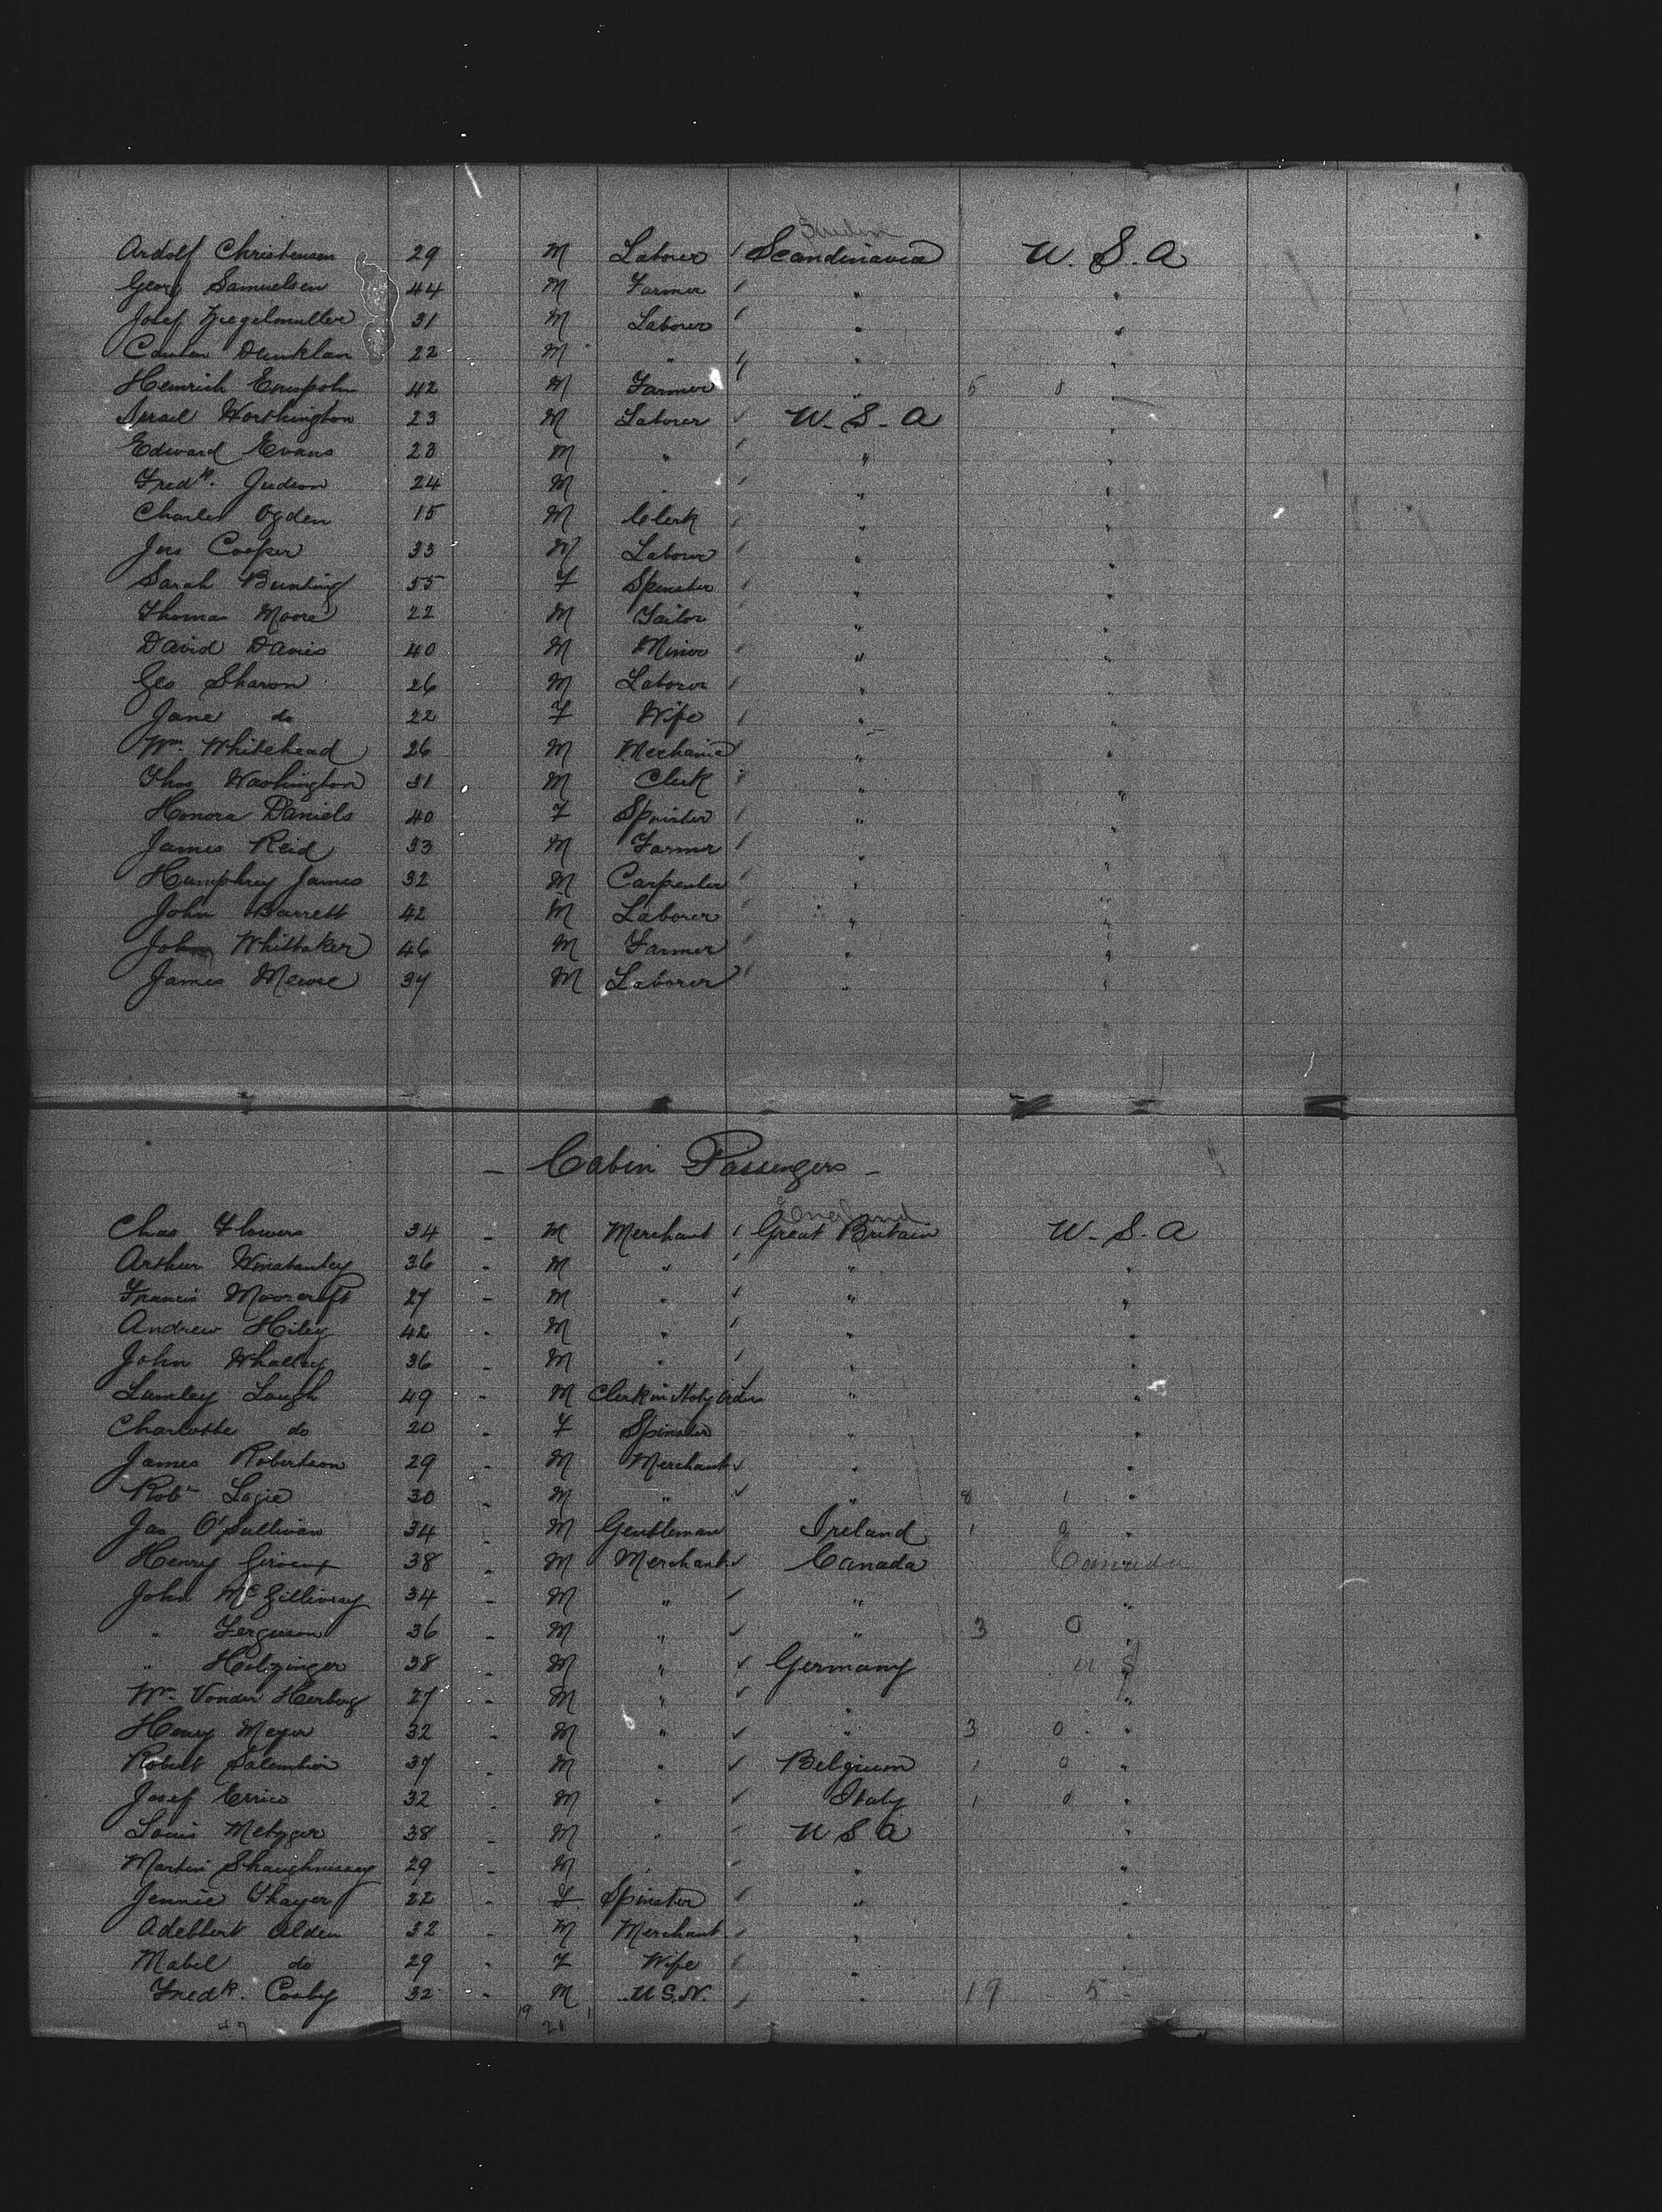 Sweden
Ardolf Christensen 29 M Laborer Scandinavia U. S. A
Georg Samuelsen 44 M Farmer " "
Josef Ziegelmuller 31 M Laborer " "
Dunklan 22 M " " "
Heinrich 42 M Farmer " 5 0 "
Israel Worthington 23 M Laborer U. S. A "
Edward Evans 28 M " " "
Fredk. Judson 24 M " " "
Charles Ogden 15 M Clerk " "
Jno Cooper 33 M Laborer " "
Sarah Bunting 55 F Spinster " "
Thomas Moore 22 M Tailor " "
David Davies 40 M Minor " "
Geo Sharon 26 M Laborer " "
Jane do 22 F Wife " "
Wm. Whitehead 26 M Mechanic " "
Thos Washington 31 M Clerk " "
Honora Daniels 40 F Spinster " "
James Reid 33 M Farmer " "
Humphrey James 32 M Carpenter " "
John Barrett 42 M Laborer " "
John Whittaker 46 M Farmer " "
James 34 M Laborer " "
- Cabin Passengers -
England
Chas Flowers 34 - M Merchant Great Britain U. S. A
Arthur Winstanley 36 - M " " "
Francis Moorcroft 27 - M " " "
Andrew Hiley 42 - M " " "
John Whalley 36 - M " " "
Lumley Lough 49 - M Clerk in Holy Orders " "
Charlotte do 20 - F Spinster " "
James Robertson 29 - M Merchant " "
Robt Logie 30 - M " " 8 1 "
Jas O'Sullivan 34 - M Gentleman Ireland 1 0 "
Henry 38 - M Merchant Canada Canada
John McGillivray 34 - M " " "
" Ferguson 36 - M " " 3 0 "
" Holzinger 38 - M " Germany U S
Wm. Vonder Herberg 27 - M " " "
Henry Meyer 32 - M " " 3 0 "
Robert Salembier 37 - M " Belgium 1 0 "
Josef Errico 32 - M " Italy 1 0 "
Louis Metzger 38 - M " U S A "
Martin Shaughnessey 29 - M " " "
Jennie Thayer 22 - F Spinster " "
Adelbert Alden 32 - M Merchant " "
Mabel do 29 - F Wife " "
Fredk. Cosby 32 - M U.S.N. " 19 5
47 19 20 1